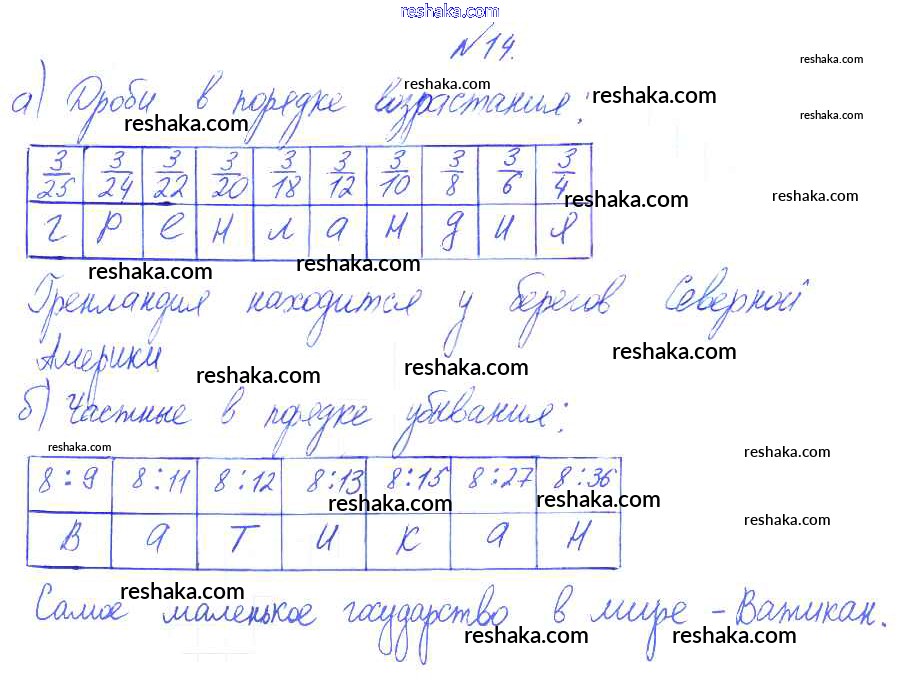 reshaka.com
№14.
reshaka.com
reshaka.com
а) Дроби в порядке возрастания:
reshaka.com
reshaka.com
reshaka.com
3/25 3/24 3/22 3/20 3/18 3/12 3/10 3/8 3/6 3/4
reshaka.com
reshaka.com
г р е н л а н д и я
reshaka.com
reshaka.com
Гренландия находится у берегов Северной
Америки
reshaka.com
reshaka.com
reshaka.com
б) Частные в порядке убывания:
reshaka.com
reshaka.com
8:9 8:11 8:12 8:13 8:15 8:27 8:36
reshaka.com
reshaka.com
reshaka.com
в а т и к а н
reshaka.com
Самое маленькое государство в мире - Ватикан.
reshaka.com
reshaka.com